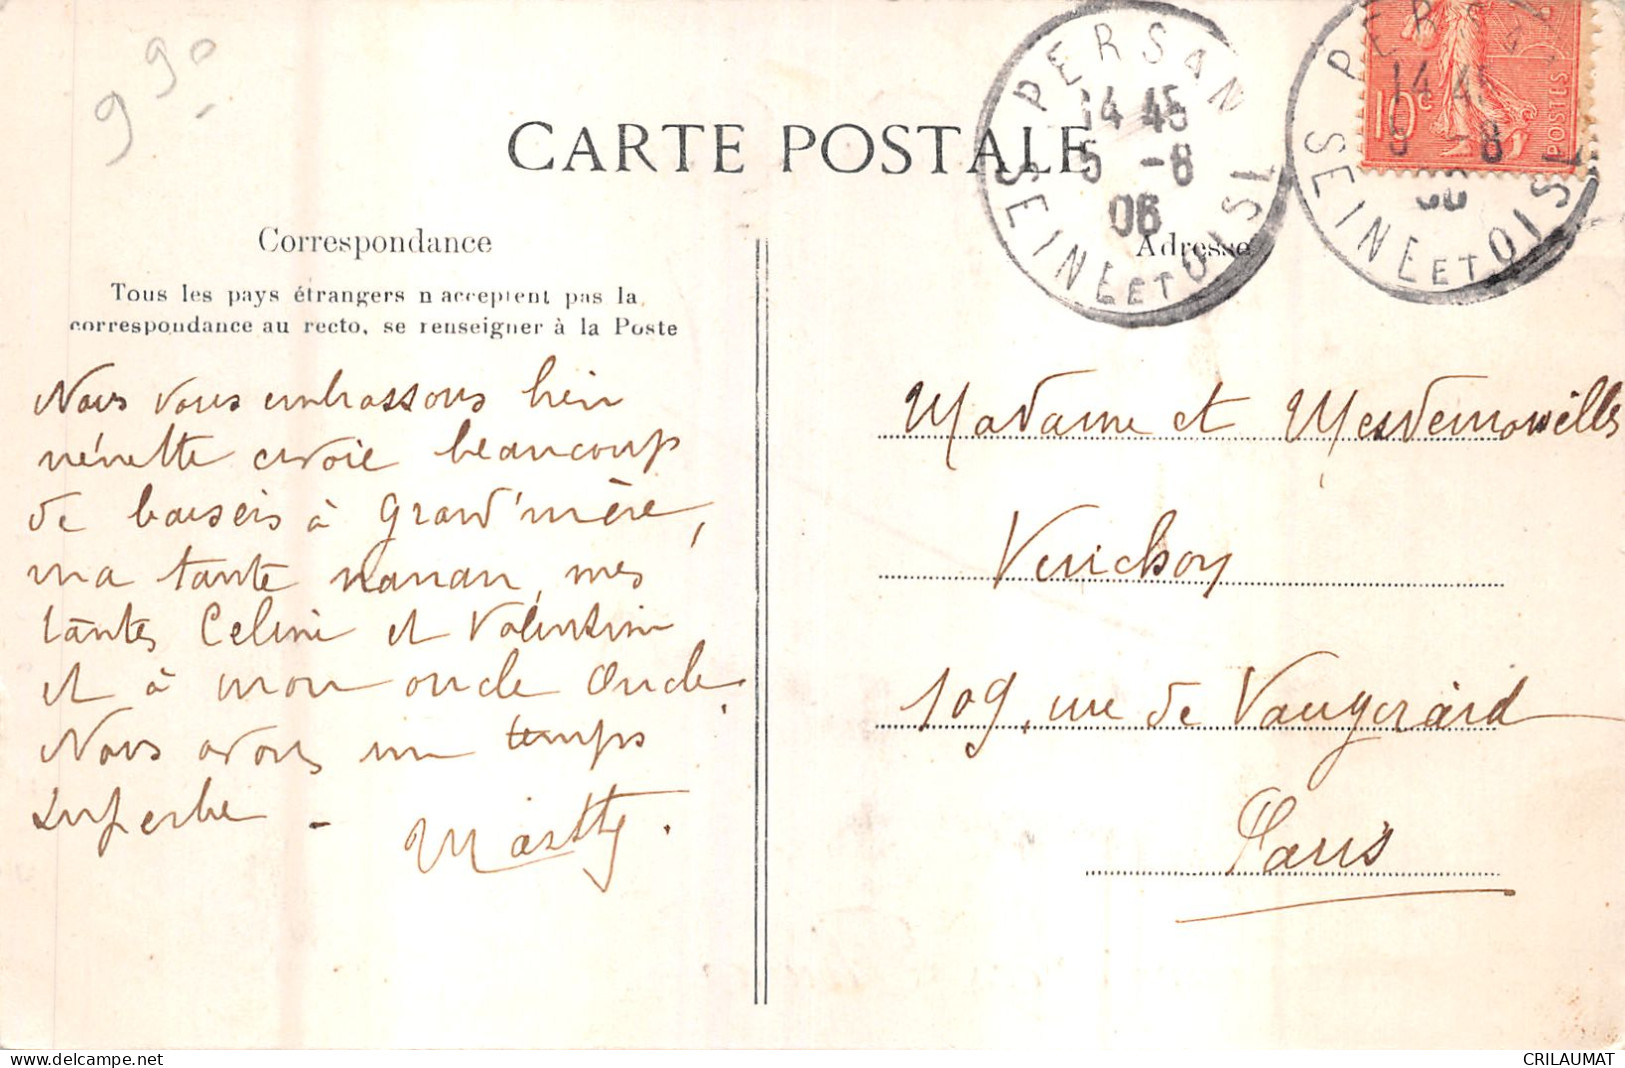 990
CARTE POSTALE
PERSAN
14 45
5 -8
06
SEINE ET OISE
PERSAN
14 45
5 -8
06
SEINE ET OISE
10c
POSTES
Correspondance
Tous les pays étrangers n acceptent pas la
correspondance au recto, se renseigner à la Poste
Adresse
Nous vous embrassons bien
nénette envoie beaucoup
de baisers à Grand'mère,
ma tante nanan, mes
tantes Celine et Valentine
et à mon oncle
Nous avons un temps
superbe -
Madame et Mesdemoiselles
109, rue de Vaugirard
Paris
www.delcampe.net
CRILAUMAT